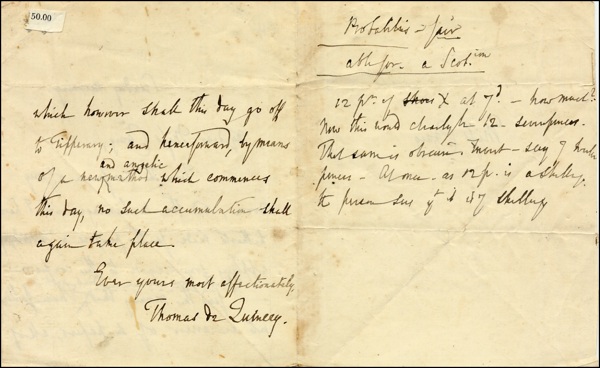 50.00
which however shall this day go off
to Tipperary; and henceforward, by means
and angelic
of a new method which commences
this day, no such accumulation shall
again take place.
Ever yours most affectionately,
Thomas de Quincey.
Probabilis - fair
able for. a Scot.
12 p. of shoes X at 7d. - how much?
Now this would clearly be 12 - sevenpences.
That sum is obscure. Invert - say 7 twelve
pences - At once - as 12 p. is a shilling,
the person sees yt it is 7 shillings